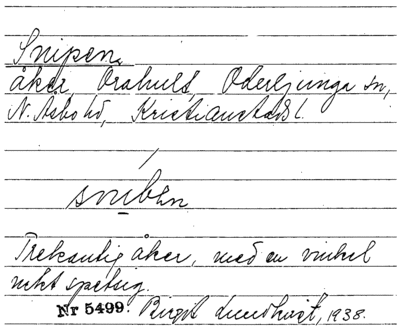 Snipen.
åker, Orahult, Oderljunga sn,
N. Åsbo hd, Kristianstads l.
snibɘn
Trekantig åker, med en vinkel
rekt spetsig.
Nr 5499. Birgit Lundkvist, 1938.